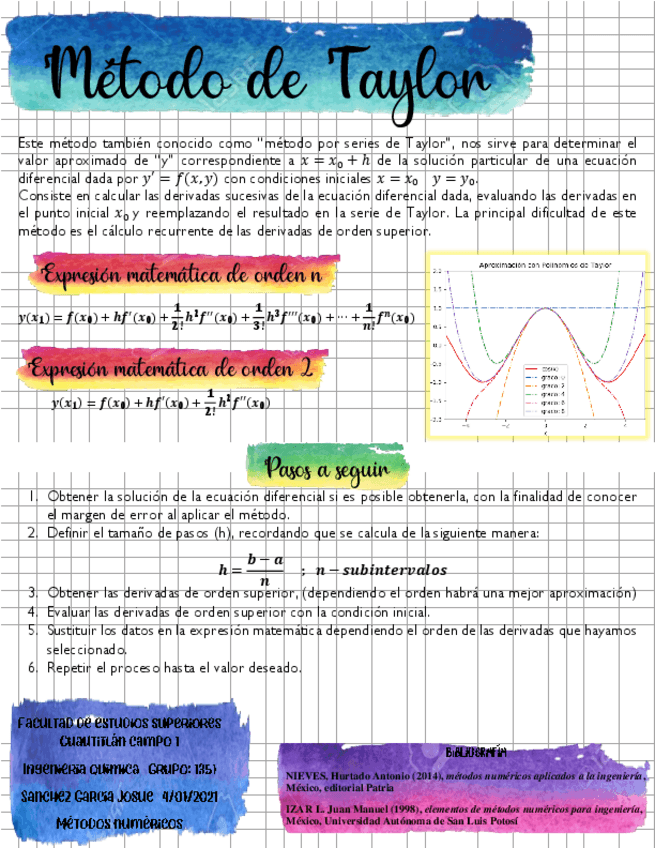 Método de Taylor
Este método también conocido como "método por series de Taylor", nos sirve para determinar el
valor aproximado de "y" correspondiente a x = x₀ + h de la solución particular de una ecuación
diferencial dada por y′ = f(x, y) con condiciones iniciales x = x₀  y = y₀.
Consiste en calcular las derivadas sucesivas de la ecuación diferencial dada, evaluando las derivadas en
el punto inicial x₀ y reemplazando el resultado en la serie de Taylor. La principal dificultad de este
método es el cálculo recurrente de las derivadas de orden superior.
Expresión matemática de orden n
y(x₁) = f(x₀) + hf′(x₀) + 1/2! h²f′′(x₀) + 1/3! h³f′′′(x₀) + ⋯ + 1/n! fⁿ(x₀)
Expresión matemática de orden 2
y(x₁) = f(x₀) + hf′(x₀) + 1/2! h²f′′(x₀)
Aproximación con Polinomios de Taylor
Pasos a seguir
1. Obtener la solución de la ecuación diferencial si es posible obtenerla, con la finalidad de conocer
el margen de error al aplicar el método.
2. Definir el tamaño de pasos (h), recordando que se calcula de la siguiente manera:
h = b − a / n ; n − subintervalos
3. Obtener las derivadas de orden superior, (dependiendo el orden habrá una mejor aproximación)
4. Evaluar las derivadas de orden superior con la condición inicial.
5. Sustituir los datos en la expresión matemática dependiendo el orden de las derivadas que hayamos
seleccionado.
6. Repetir el proceso hasta el valor deseado.
Facultad de estudios superiores
Cuautitlán campo 1
Ingeniería química Grupo: 1351
Sánchez García Josue 4/01/2021
Métodos numéricos
Bibliografía
NIEVES, Hurtado Antonio (2014), métodos numéricos aplicados a la ingeniería,
México, editorial Patria
IZAR L. Juan Manuel (1998), elementos de métodos numéricos para ingeniería,
México, Universidad Autónoma de San Luis Potosí